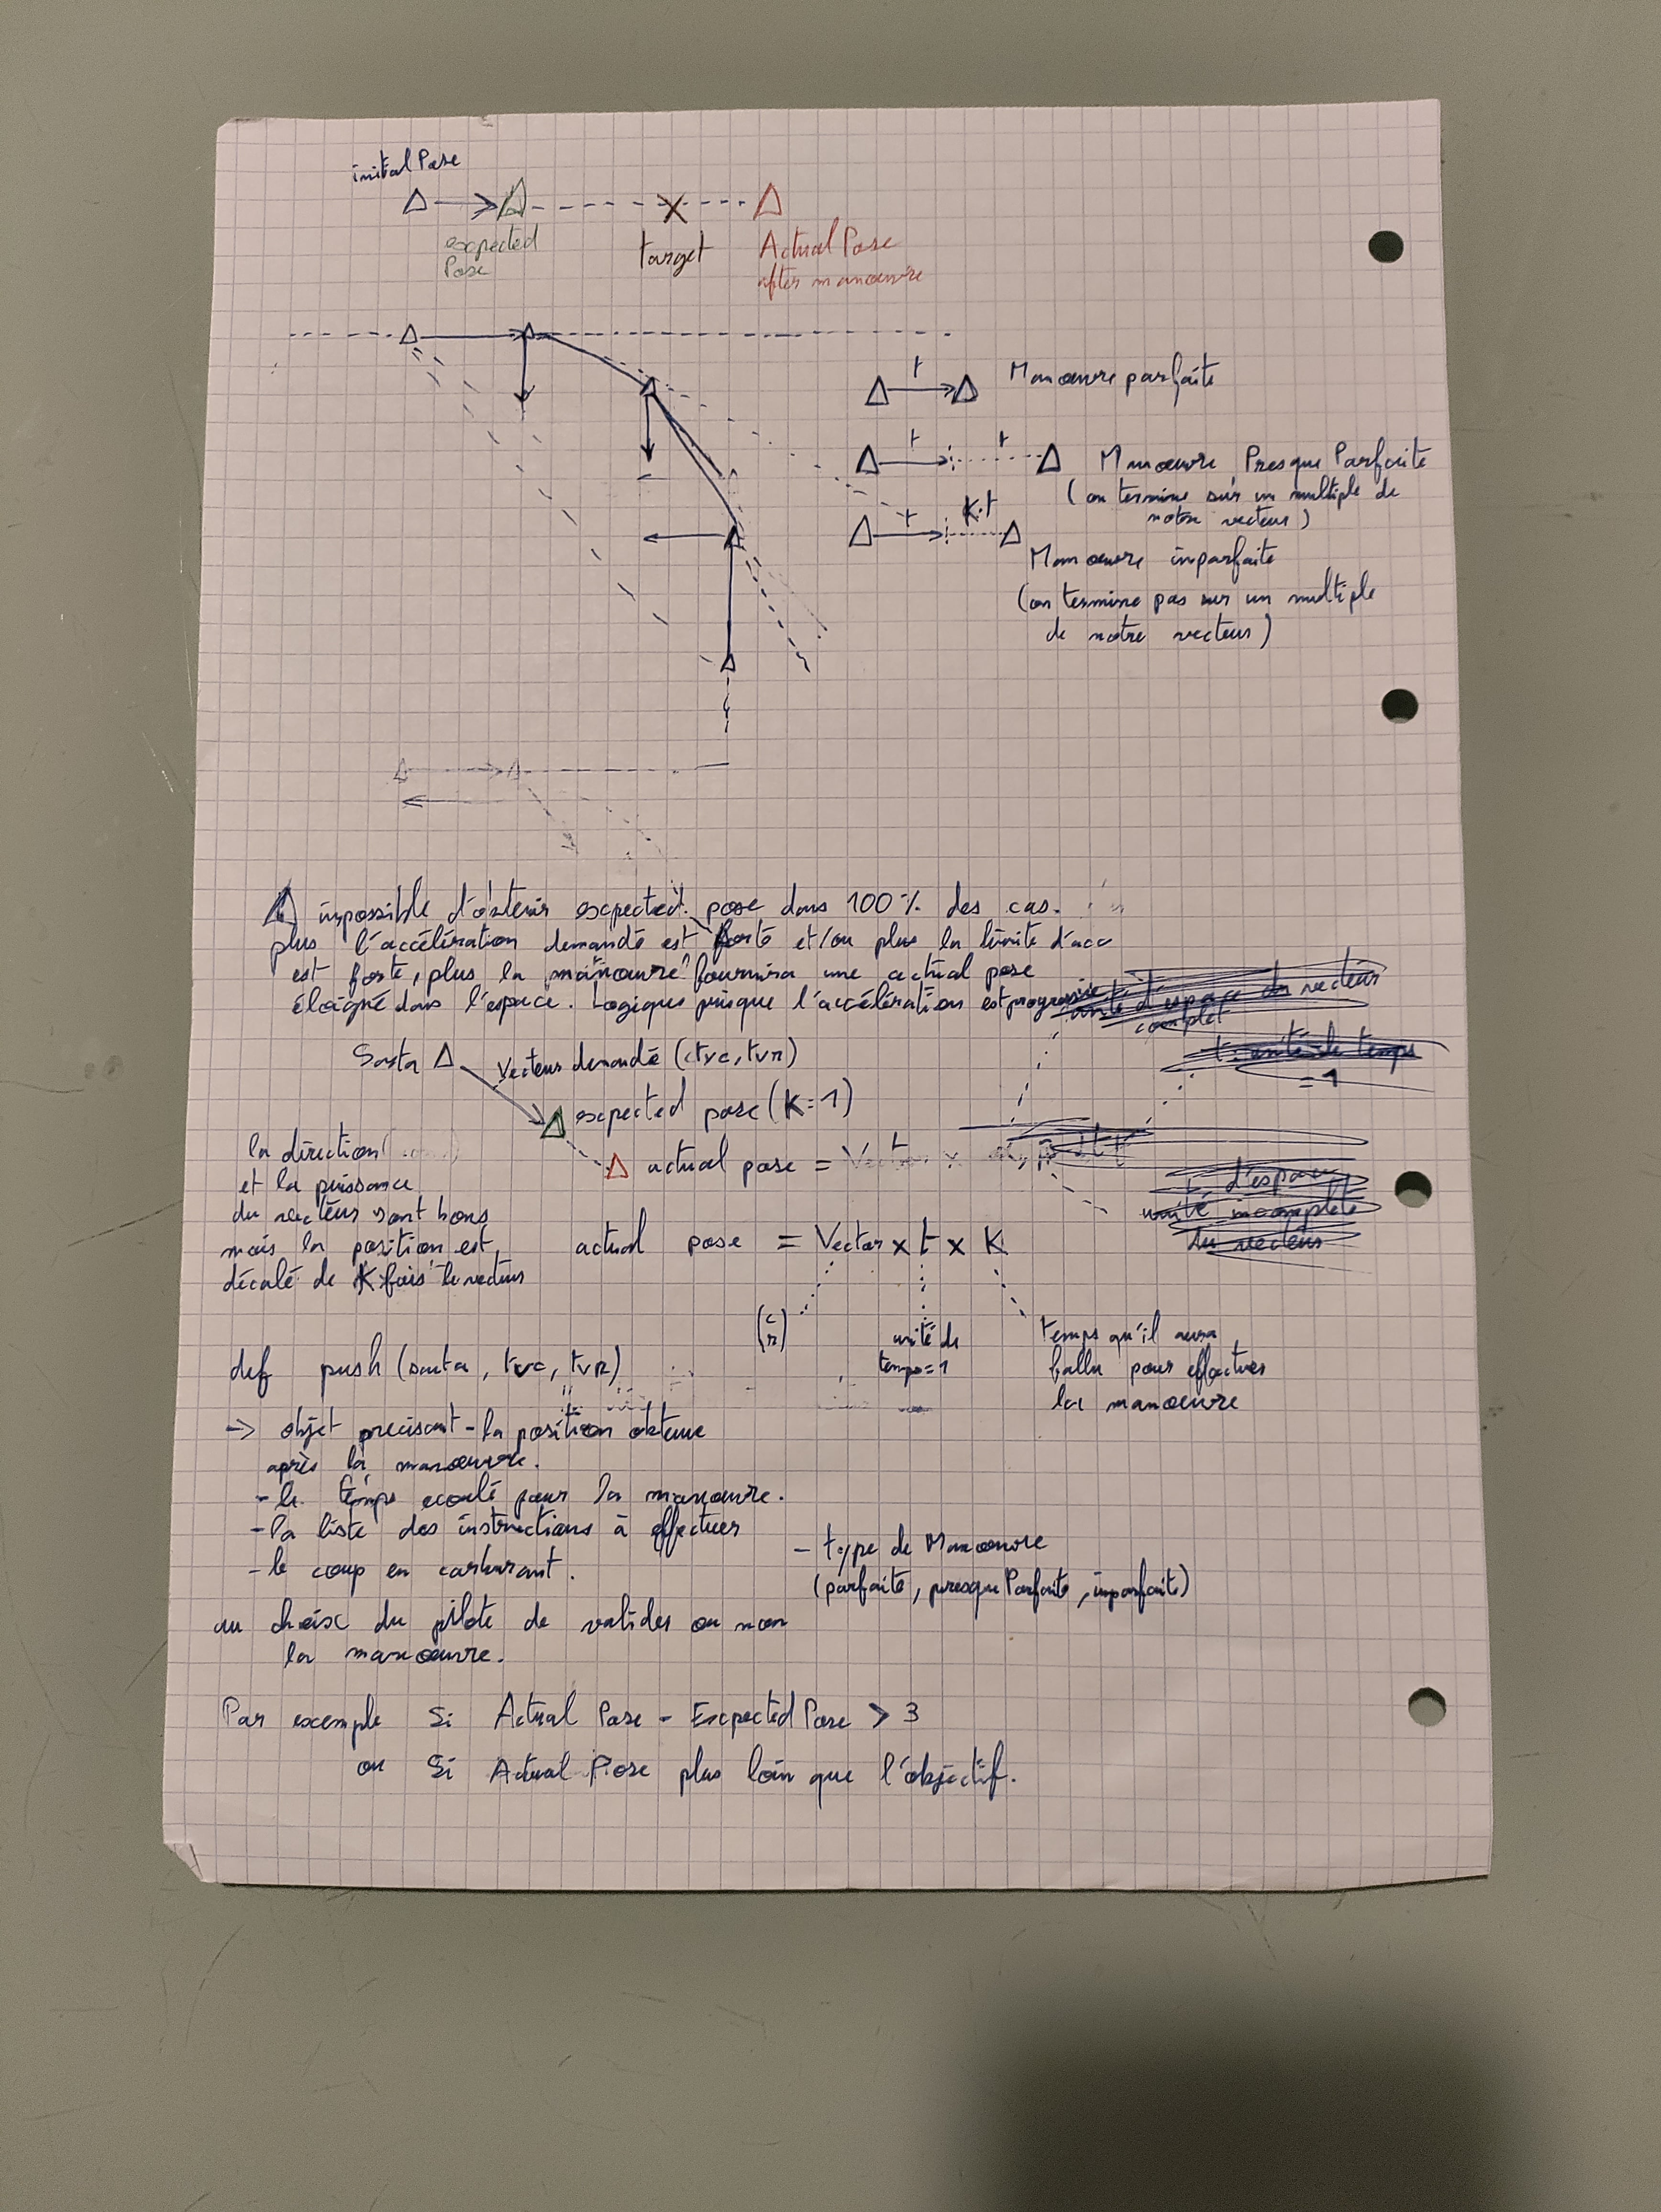 initial Pose
expected
Pose
target
Actual Pose
after manœuvre
t
Manœuvre parfaite
t
t
Manœuvre Presque Parfaite
(on termine sur un multiple de
notre vecteur)
t
K.t
Manœuvre imparfaite
(on termine pas sur un multiple
de notre vecteur)
impossible d'obtenir expected pose dans 100% des cas.
plus l'accélération demandé est forte et/ou plus la limite d'acc
est forte, plus la manœuvre fournira une actual pose
éloigné dans l'espace. Logique puisque l'accélération est progressive
unité d'espace du vecteur
complet
t: unité de temps
= 1
Santa
Vecteur demandé (tvc, tvr)
expected pose (K=1)
actual pose = Vector x
d'espace
unité incomplète
du vecteur
la direction
et la puissance
du vecteur sont bons
mais la position est
décalé de K fois le vecteur
actual pose = Vector x t x K
(c
r)
unité de
temps=1
temps qu'il aura
fallu pour effectuer
la manœuvre
def push (santa, tvc, tvr)
-> objet précisant - la position obtenue
après la manœuvre.
- le temps ecoulé pour la manœuvre.
- la liste des instructions à effectuer
- le coup en carburant.
- type de Manœuvre
(parfaite, presque Parfaite, imparfaite)
au choix du pilote de valider ou non
la manœuvre.
Par exemple Si Actual Pose - Expected Pose > 3
ou Si Actual Pose plus loin que l'objectif.